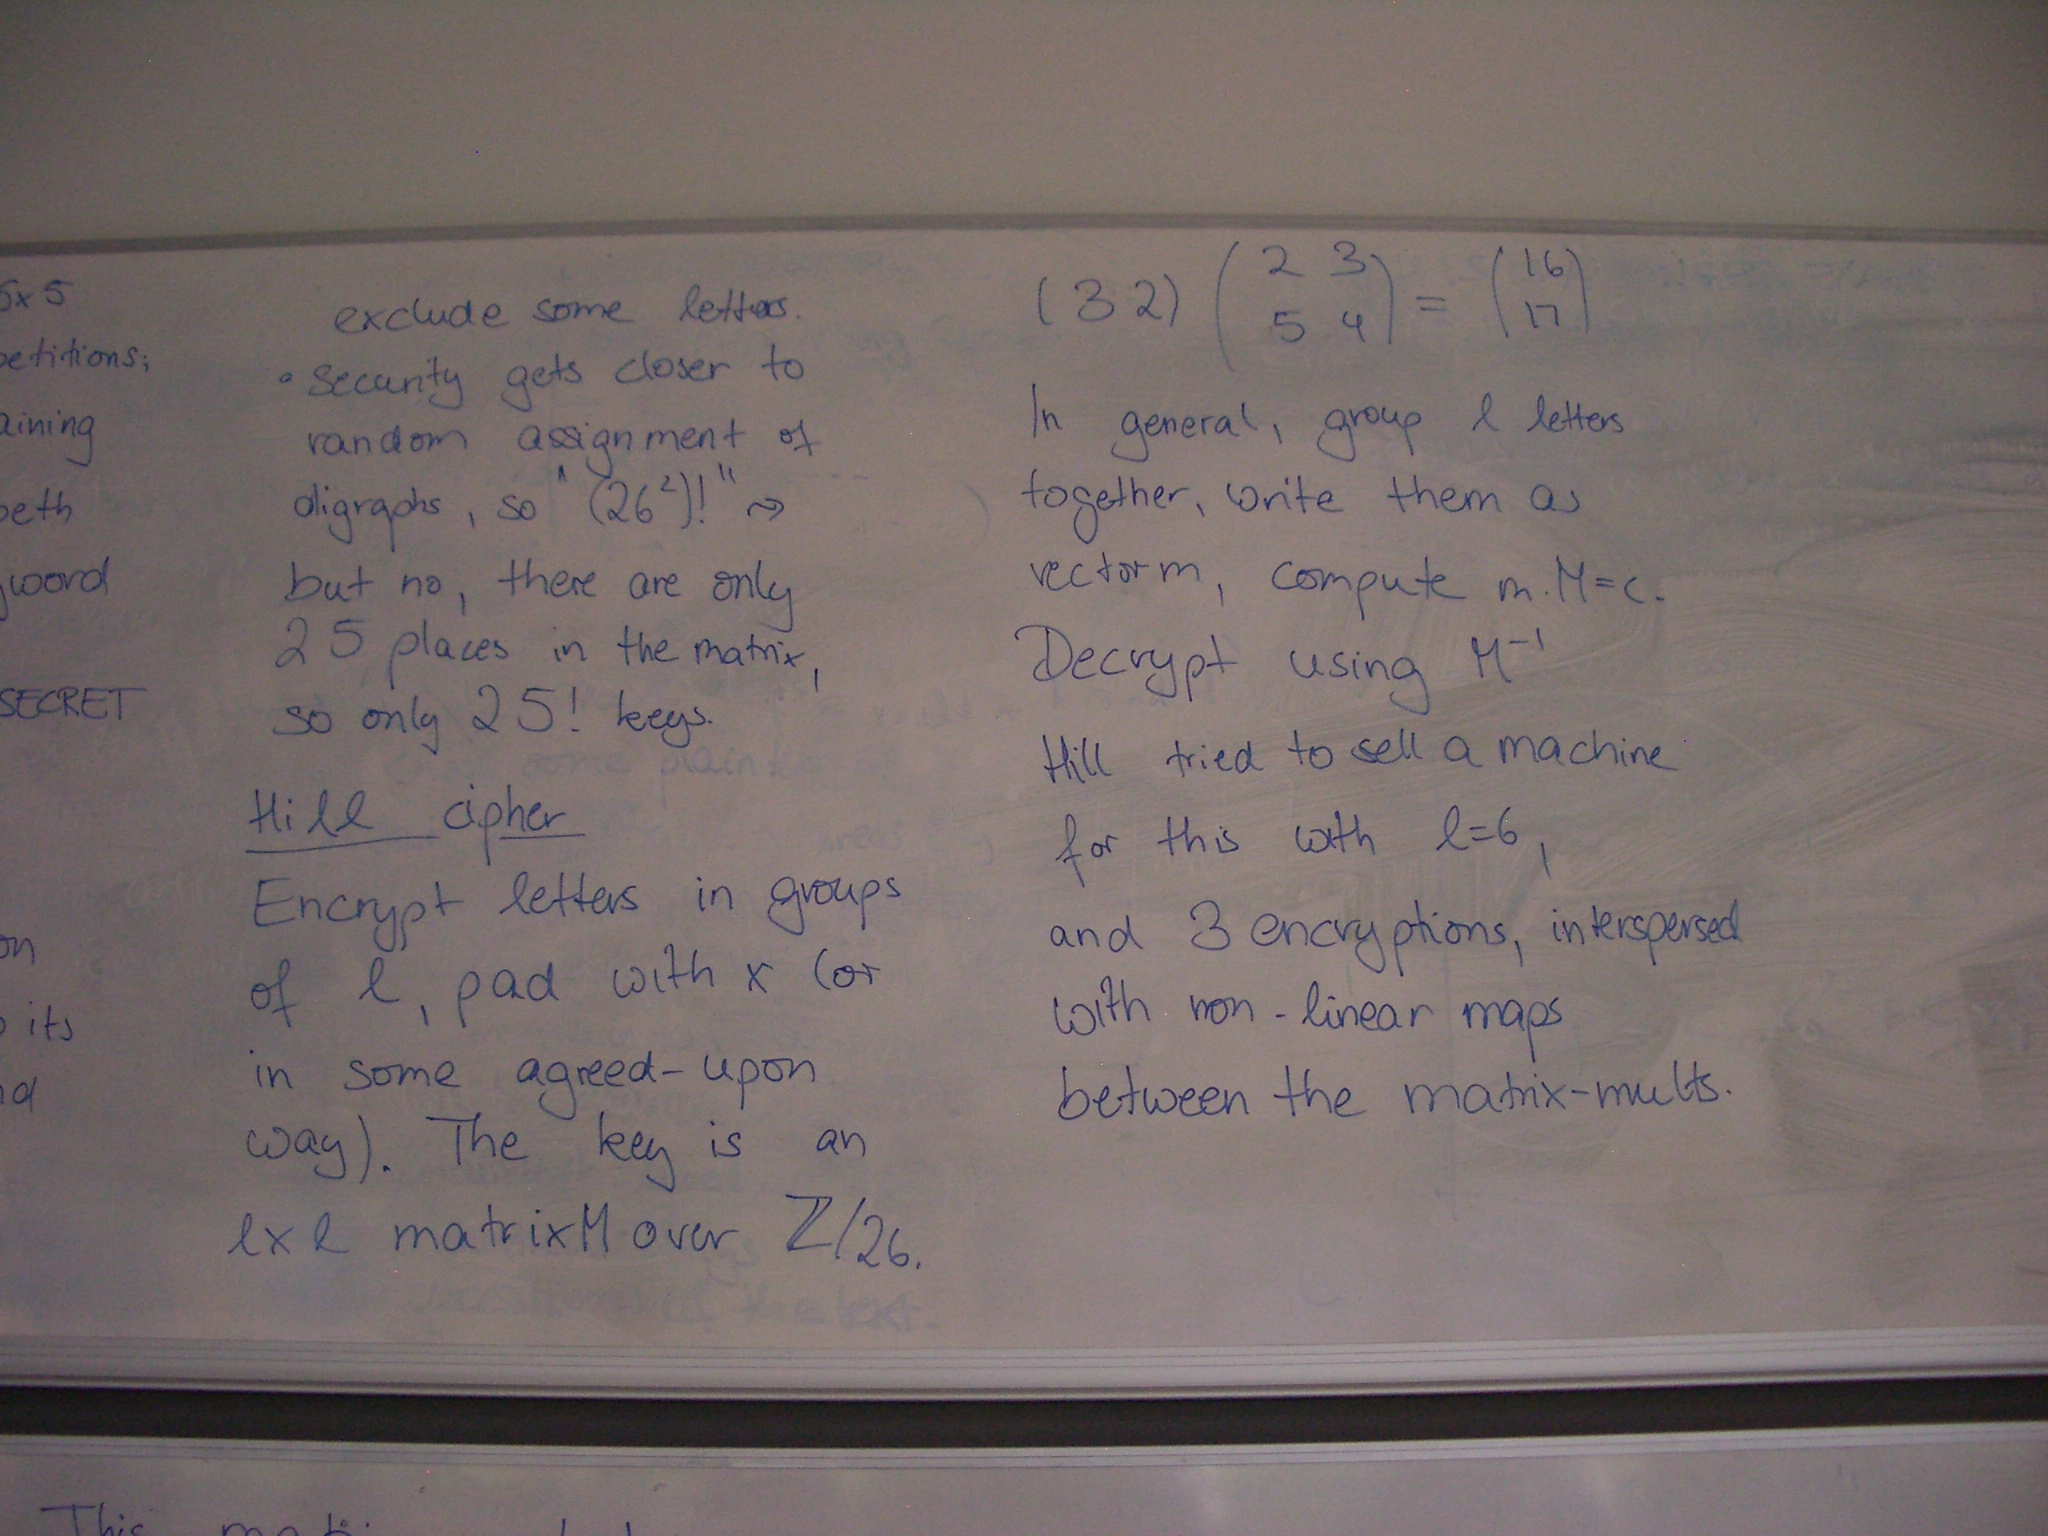 5x5
petitions;
aining
beth
yword
SECRET
on
its
nd
exclude some letters.
• Security gets closer to
random assignment of
digraphs, so "(26²)!" ⇝
but no, there are only
25 places in the matrix,
so only 25! keys.
Hill cipher
Encrypt letters in groups
of l, pad with x (or
in some agreed-upon
way). The key is an
l×l matrix M over ℤ/26.
(3 2) (2 3
5 4) = (16
17)
In general, group l letters
together, write them as
vector m, compute m.M=c.
Decrypt using M⁻¹
Hill tried to sell a machine
for this with l=6,
and 3 encryptions, interspersed
with non-linear maps
between the matrix-mults.
This